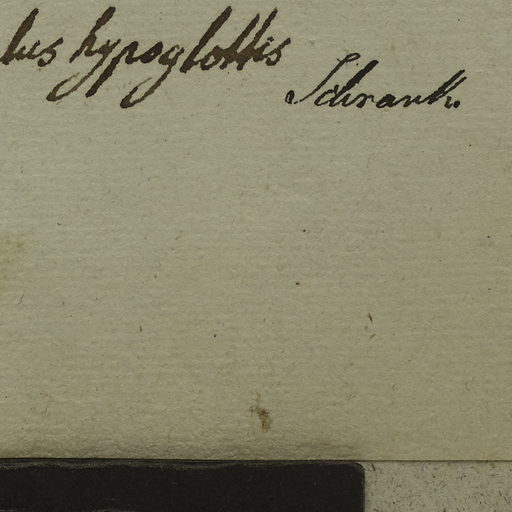 lus hypoglottis
Schrank.